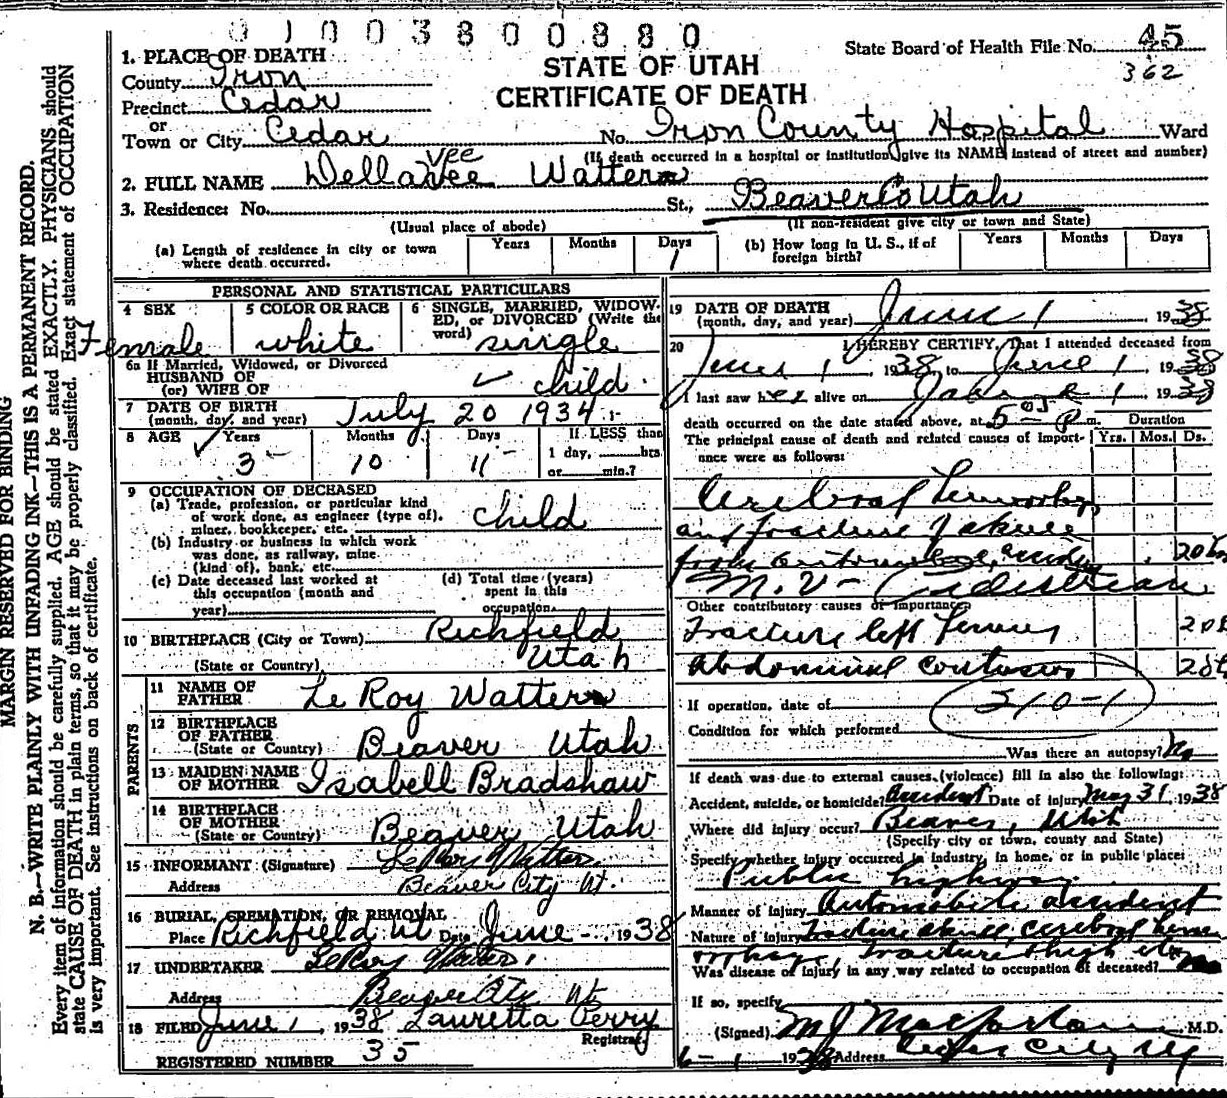 0 1 0 0 3 8 0 0 8 8 0
State Board of Health File No. 45
362
STATE OF UTAH
CERTIFICATE OF DEATH
1. PLACE OF DEATH
County Iron
Precinct Cedar
or
Town or City Cedar No. Iron County Hospital Ward
(If death occurred in a hospital or institution, give its NAME instead of street and number)
vee
2. FULL NAME Dellavee Watters
3. Residence: No. St., Beaver Co Utah
(Usual place of abode) (If non-resident give city or town and State)
(a) Length of residence in city or town where death occurred. Years Months Days 1
(b) How long in U. S., if of foreign birth? Years Months Days
MARGIN RESERVED FOR BINDING
N. B.—WRITE PLAINLY WITH UNFADING INK—THIS IS A PERMANENT RECORD.
Every item of information should be carefully supplied. AGE should be stated EXACTLY. PHYSICIANS should
state CAUSE OF DEATH in plain terms, so that it may be properly classified. Exact statement of OCCUPATION
is very important. See instructions on back of certificate.
PERSONAL AND STATISTICAL PARTICULARS
4 SEX Female
5 COLOR OR RACE white
6 SINGLE, MARRIED, WIDOWED, or DIVORCED (Write the word) single
6a If Married, Widowed, or Divorced
HUSBAND OF
(or) WIFE OF child
7 DATE OF BIRTH
(month, day, and year) July 20 1934
8 AGE Years 3 Months 10 Days 11 If LESS than
1 day, hrs.
or min.?
9 OCCUPATION OF DECEASED
(a) Trade, profession, or particular kind
of work done, as engineer (type of),
miner, bookkeeper, etc. child
(b) Industry or business in which work
was done, as railway, mine
(kind of), bank, etc.
(c) Date deceased last worked at
this occupation (month and
year)
(d) Total time (years)
spent in this
occupation
10 BIRTHPLACE (City or Town) Richfield
(State or Country) Utah
PARENTS
11 NAME OF
FATHER Le Roy Watters
12 BIRTHPLACE
OF FATHER
(State or Country) Beaver Utah
13 MAIDEN NAME
OF MOTHER Isabell Bradshaw
14 BIRTHPLACE
OF MOTHER
(State or Country) Beaver Utah
15 INFORMANT (Signature) Le Roy Watters
Address Beaver City Ut.
16 BURIAL, CREMATION, OR REMOVAL
Place Richfield Ut Date June - 1938
17 UNDERTAKER LeRoy Watters
Address Beaver City Ut
18 FILED June 1, 1938 Lauretta Perry
Registrar
REGISTERED NUMBER 35
19 DATE OF DEATH
(month, day, and year) June 1 1938
20 I HEREBY CERTIFY, That I attended deceased from
June 1 1938, to June 1, 1938
I last saw her alive on 1 1938
death occurred on the date stated above, at 5 05 P m. Duration
The principal cause of death and related causes of importance were as follows: Yrs. Mos. Ds.
Cerebral hemorrhage
and fracture of skull
from automobile accident 20 hrs
M.V - Pedestrian
Other contributory causes of importance
Fracture left femur 20
Abdominal contusions 20
If operation, date of 210-1
Condition for which performed
Was there an autopsy? No
If death was due to external causes, (violence) fill in also the following:
Accident, suicide, or homicide? Accident Date of injury May 31, 1938
Where did injury occur? Beaver, Utah
(Specify city or town, county and State)
Specify whether injury occurred in industry, in home, or in public place:
Public highway
Manner of injury Automobile accident
Nature of injury Fracture skull, cerebral hemorrhage, Fracture thigh etc
Was disease or injury in any way related to occupation of deceased? no
If so, specify
(Signed) M J Macfarlane M.D.
6-1 1938 Address Cedar City Ut